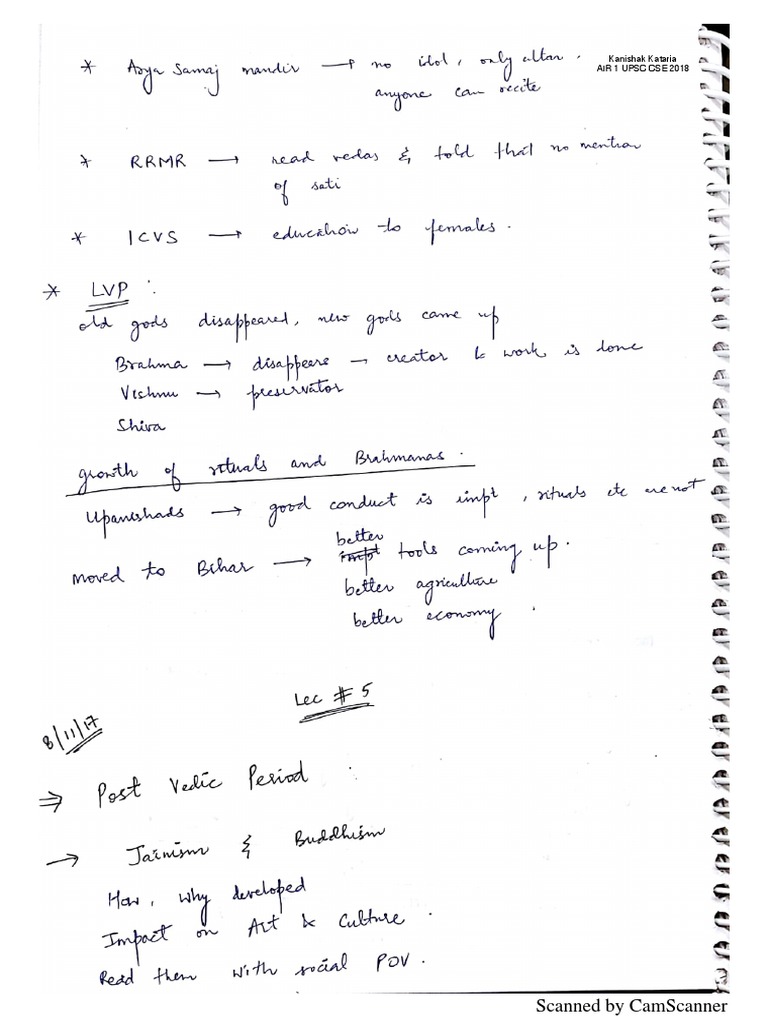 Kanishak Kataria
AIR 1 UPSC CSE 2018
* Arya Samaj mandir → no idol, only altar.
anyone can recite
* RRMR → read vedas & told that no mention
of sati
* ICVS → education to females.
* LVP :
old gods disappeared, new gods came up
Brahma → disappears → creator & work is done
Vishnu → preservator
Shiva
growth of rituals and Brahmanas.
Upanishads → good conduct is impt, rituals etc are not
better
moved to Bihar → impt tools coming up.
better agriculture
better economy.
Lec # 5
8/11/17
⇒ Post Vedic Period :
→ Jainism & Buddhism
How, why developed
Impact on Art & Culture.
Read them with social POV.
Scanned by CamScanner